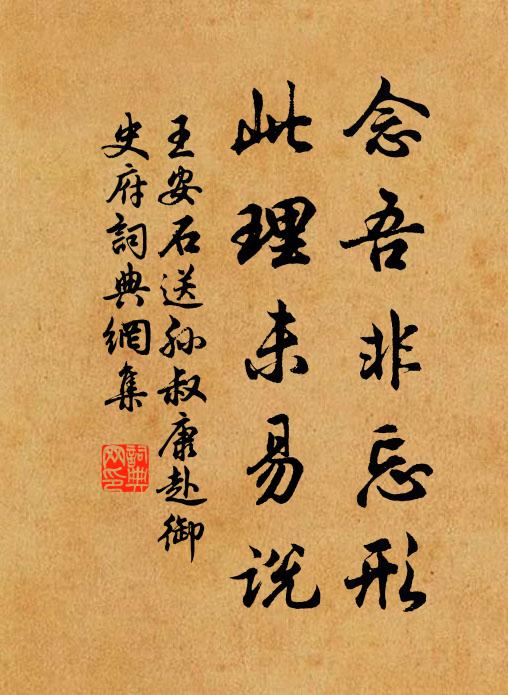 念吾非忘形
此理未易說
王安石送孙叔康赴御
史府詞典網集
詞典網印